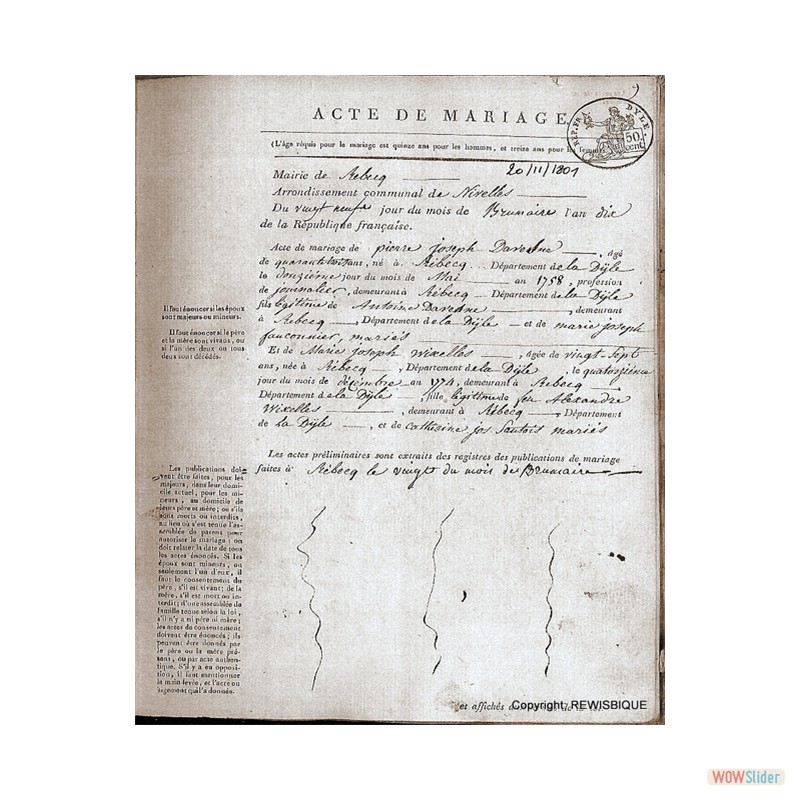 9
ACTE DE MARIAGE
REP. FRA. DYLE.
50 cent
(L'âge réquis pour le mariage est quinze ans pour les hommes, et treize ans pour les femmes
20/11/1801
Mairie de Rebecq
Arrondissement communal de Nivelles
Du vingt neufe jour du mois de Brumaire l'an dix
de la République française.
Acte de mariage de pierre joseph Davenne, âgé
de quarante trois ans, né à Rébecq Département de la Dÿle
le douzième jour du mois de Mai an 1758, profession
de journalier, demeurant à Rébecq Département de la Dÿle
fils légitime de Antoine Davenne, demeurant
à Rebecq, Département de la Dÿle et de marie joseph
fauconnier, mariés
Et de Marie joseph Wixelles, âgée de vingt-sept
ans, née à Rébecq, Département de la Dÿle, le quatorzième
jour du mois de décembre an 1774, demeurant à Rebecq
Département de la Dÿle, fille légitime de feu Alexandre
Wixelles, demeurant à Rébecq, Département
de la Dÿle, et de catherine jos Sautois mariés
Les actes préliminaires sont extraits des registres des publications de mariage
faites à Rébecq le vingt du mois de Brumaire
Il faut énoncer si les époux
sont majeurs ou mineurs.
Il faut énoncer si le père
et la mère sont vivans, ou
si l'un des deux ou tous
deux sont décédés.
Les publications doi-
vent être faites, pour les
majeurs, dans leur domi-
cile actuel; pour les mi-
neurs, au domicile de
leurs père et mère; ou s'ils
sont morts ou interdits,
au lieu où s'est tenue l'as-
semblée de parens pour
autoriser le mariage: on
doit relater la date de tous
les actes énoncés. Si les
époux sont mineurs, ou
seulement l'un d'eux, il
faut le consentement du
père, s'il est vivant; de la
mère, s'il est mort ou in-
terdit; d'une assemblée de
famille tenue selon la loi,
s'il n'y a ni père ni mère;
les actes de consentement
doivent être énoncés; ils
peuvent être donnés par
le père ou la mère pré-
sens, ou par acte authen-
tique. S'il y a eu opposi-
tion, il faut mentionner
la main levée, et l'acte ou
jugement qui l'a donnée.
et affichés
Copyright, REWISBIQUE
WOWSlider